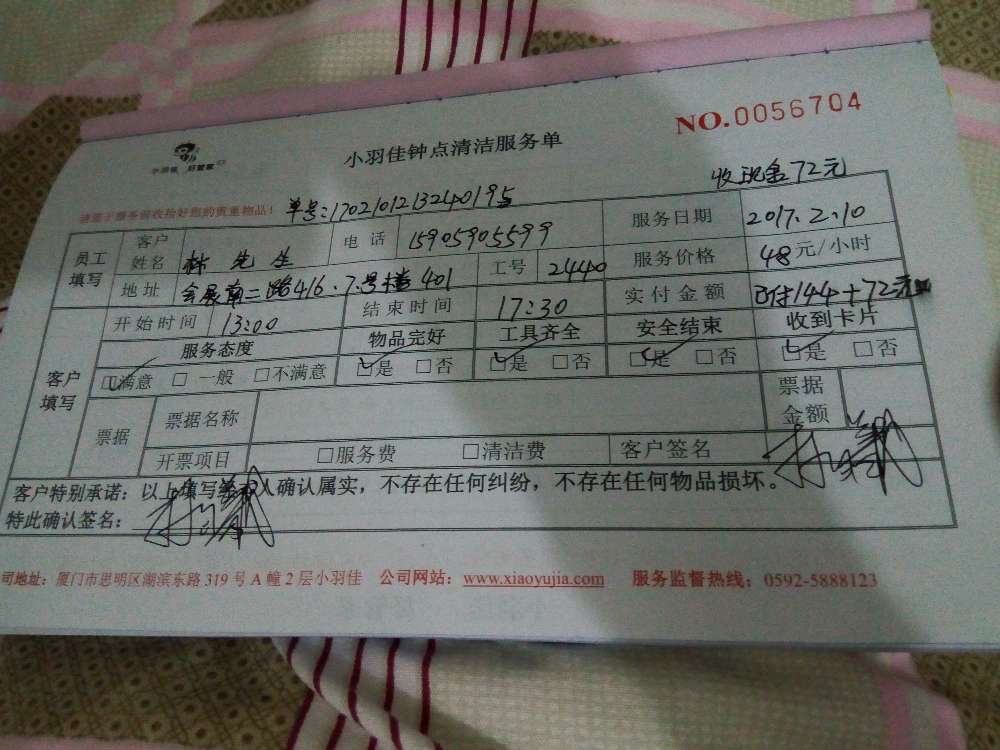 NO.0056704
小羽佳 好管家
小羽佳钟点清洁服务单
收现金72元
请您于服务前收拾好您的贵重物品!
单号:1702101213240195
员工填写 客户姓名 林先生 电话 15905905599 服务日期 2017.2.10
地址 会展南二路416.7号楼401 工号 2440 服务价格 48元/小时
开始时间 13:00 结束时间 17:30 实付金额 已付144+72元
客户填写 服务态度 物品完好 工具齐全 安全结束 收到卡片
□满意 □一般 □不满意 □是 □否 □是 □否 □是 □否 □是 □否
票据 票据名称 票据金额
开票项目 □服务费 □清洁费 客户签名
客户特别承诺:以上填写经本人确认属实,不存在任何纠纷,不存在任何物品损坏。
特此确认签名:
司地址:厦门市思明区湖滨东路319号A幢2层小羽佳 公司网站:www.xiaoyujia.com 服务监督热线:0592-5888123